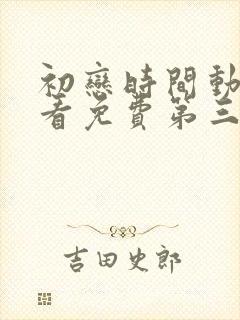 初戀時間動
看免費第三
吉田史郎